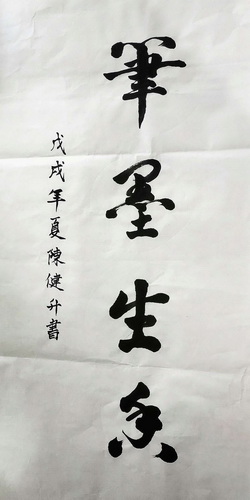 筆墨生香
戊戌年夏陳健升書